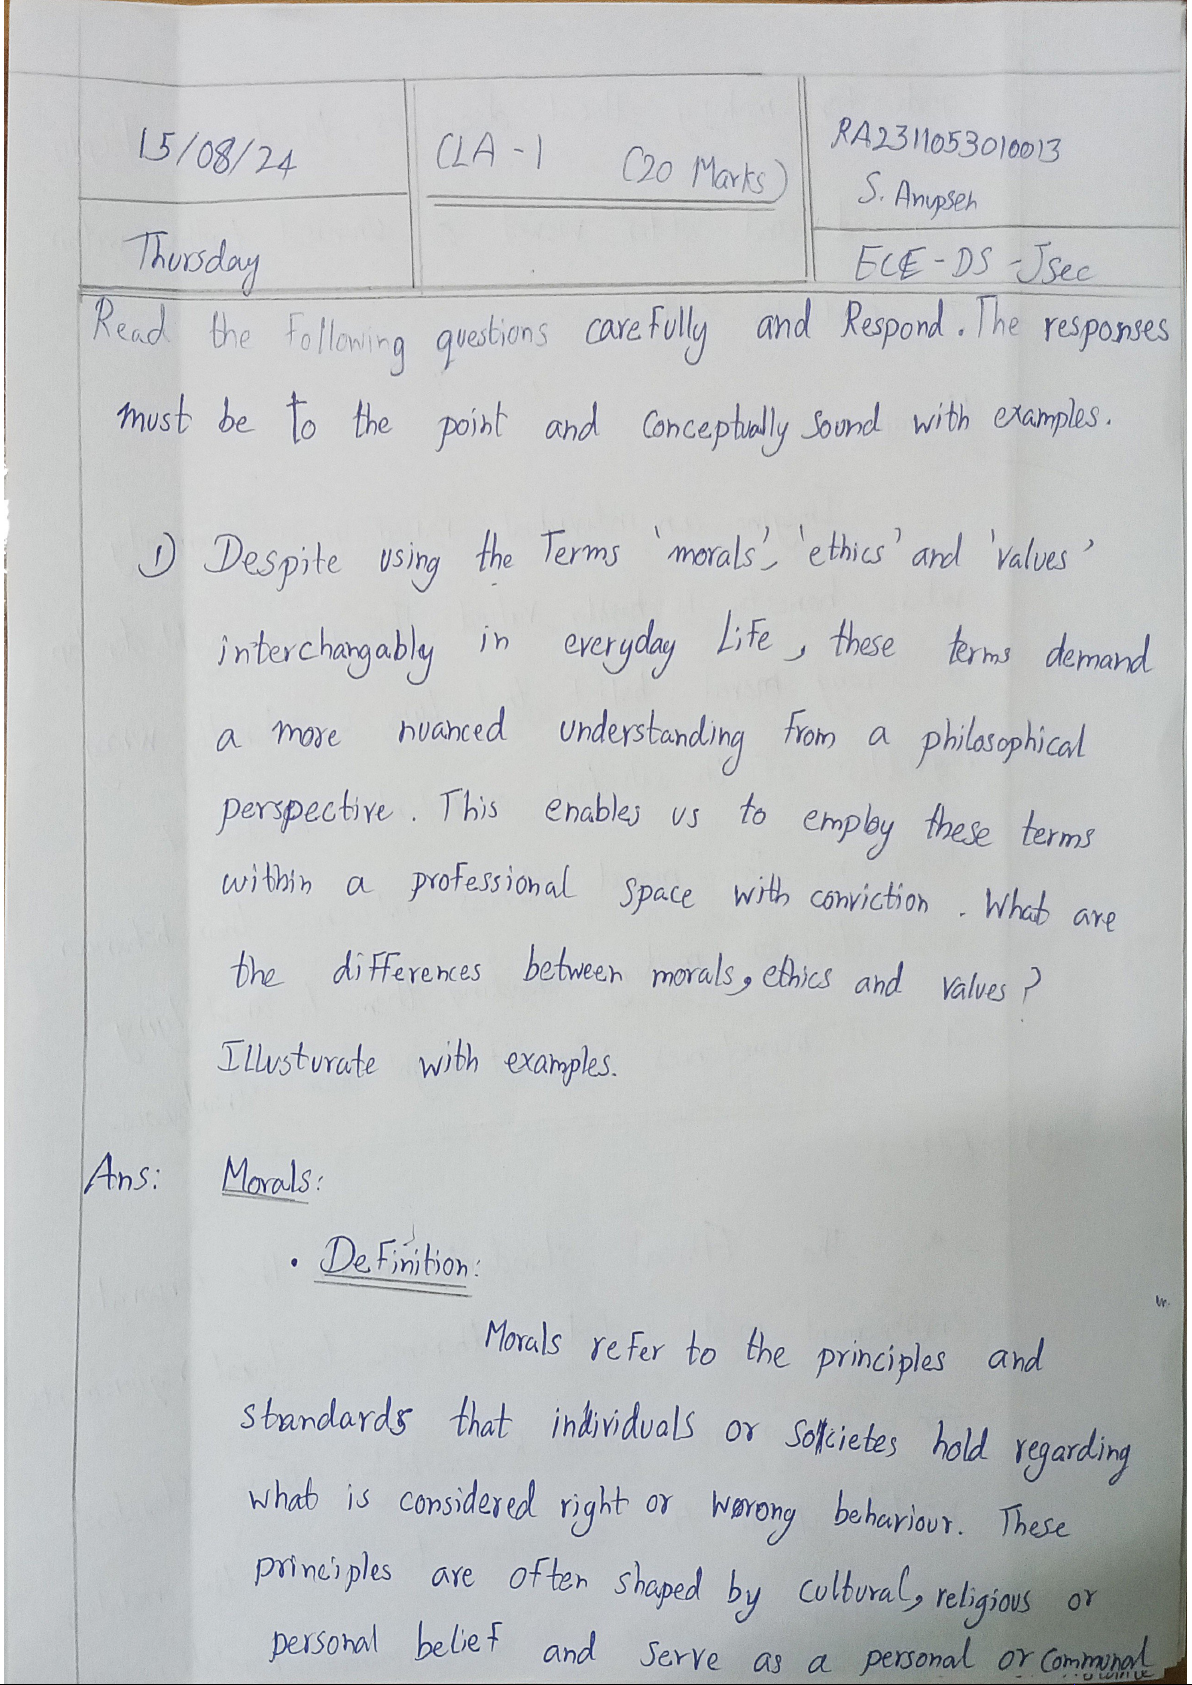 15/08/24
CLA - 1 (20 Marks)
RA2311053010013
S. Anupsen
Thursday
ECE - DS - Jsec
Read the following questions carefully and Respond. The responses
must be to the point and Conceptually Sound with examples.
1) Despite using the Terms 'morals', 'ethics' and 'values'
interchangably in everyday Life, these terms demand
a more nuanced understanding from a philosophical
perspective. This enables us to employ these terms
within a professional space with conviction. What are
the differences between morals, ethics and values?
Illusturate with examples.
Ans: Morals:
• Definition:
Morals refer to the principles and
standards that individuals or societes hold regarding
what is considered right or wrong behaviour. These
principles are often shaped by cultural, religious or
personal belief and serve as a personal or Communal